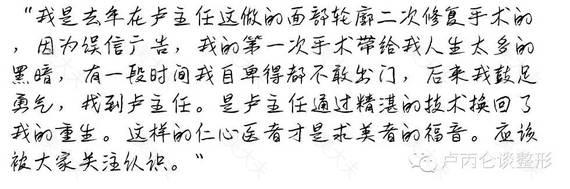 “我是去年在卢主任这做的面部轮廓二次修复手术的
，因为误信广告，我的第一次手术带给我人生太多的
黑暗，有一段时间我自卑得都不敢出门，后来我鼓足
勇气，找到卢主任。是卢主任通过精湛的技术换回了
我的重生。这样的仁心医者才是求美者的福音。应该
被大家关注认识。“
卢丙仑谈整形